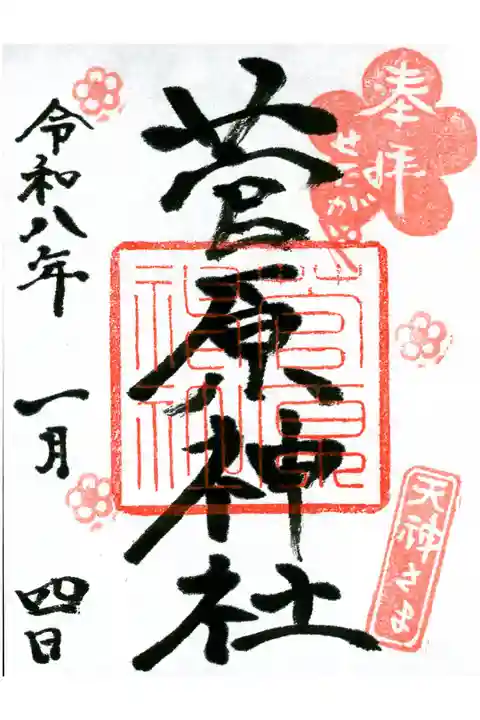 奉拝
せたがや
菅原神社
菅原神社
天神さま
令和八年 一月 四日